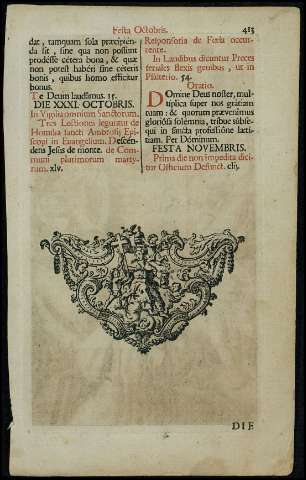 Festa Octobris. 413
dat, tamquam sola præcipien-
da sit, sine qua non possunt
prodésse cétera bona, & quæ
non potest habéri sine céteris
bonis, quibus homo efficitur
bonus.
Te Deum laudámus. 15.
DIE XXXI. OCTOBRIS.
In Vigilia omnium Sanctorum.
Tres Lectiones leguntur de
Homilia sancti Ambrosij Epis-
copi in Euangelium. Descén-
dens Jesus de monte. de Com-
muni plurimorum marty-
rum. xlv.
Responsoria de Feria occur-
rente.
In Laudibus dicuntur Preces
feriales flexis genibus, ut in
Psalterio. 54.
Oratio.
DOmine Deus noster, mul-
típlica super nos grátiam
tuam: & quorum prævenímus
gloriósa solémnia, tríbue súbse-
qui in sancta professióne lætí-
tiam. Per Dóminum.
FESTA NOVEMBRIS.
Prima die non impedita dici-
tur Officium Defunct. clij.
DIE